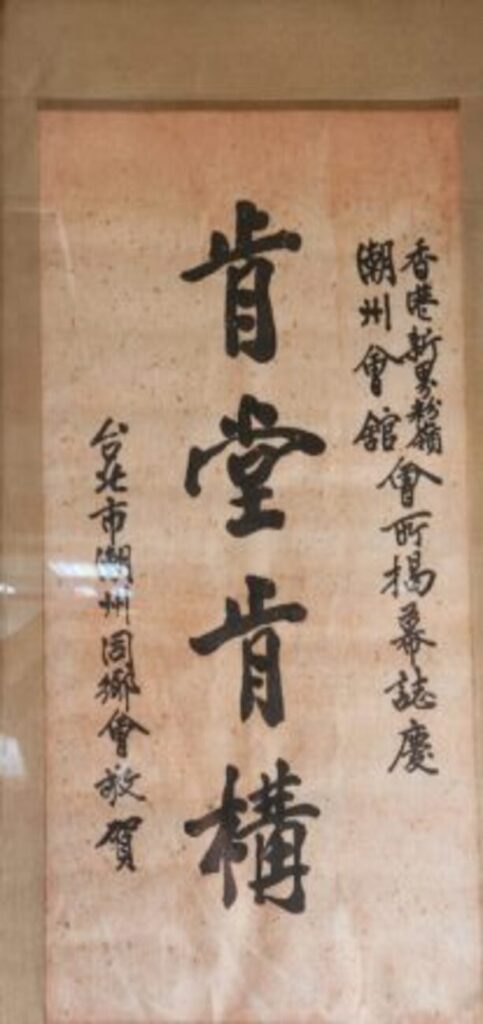 香港新界粉嶺
潮州會館
會所揭幕誌慶
肯堂肯構
台北市潮州同鄉會敬賀